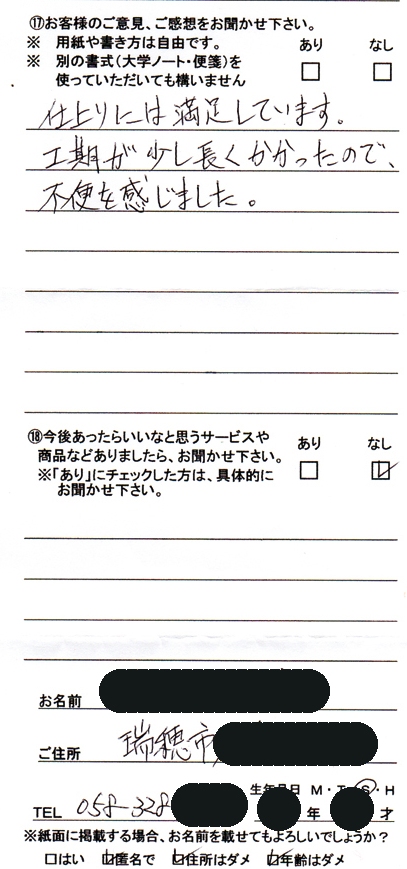 ⑰お客様のご意見、ご感想をお聞かせ下さい。
※ 用紙や書き方は自由です。 あり なし
※ 別の書式（大学ノート・便箋）を
使っていただいても構いません □ □
仕上りには満足しています。
工期が少し長くかかったので、
不便を感じました。
⑱今後あったらいいなと思うサービスや
商品などありましたら、お聞かせ下さい。 あり なし
※「あり」にチェックした方は、具体的に □ ☑
お聞かせ下さい。
お名前
ご住所 瑞穂市
生年月日 M・T・S・H
TEL 058-328 年 才
※紙面に掲載する場合、お名前を載せてもよろしいでしょうか？
□はい ☑匿名で ☑住所はダメ ☑年齢はダメ